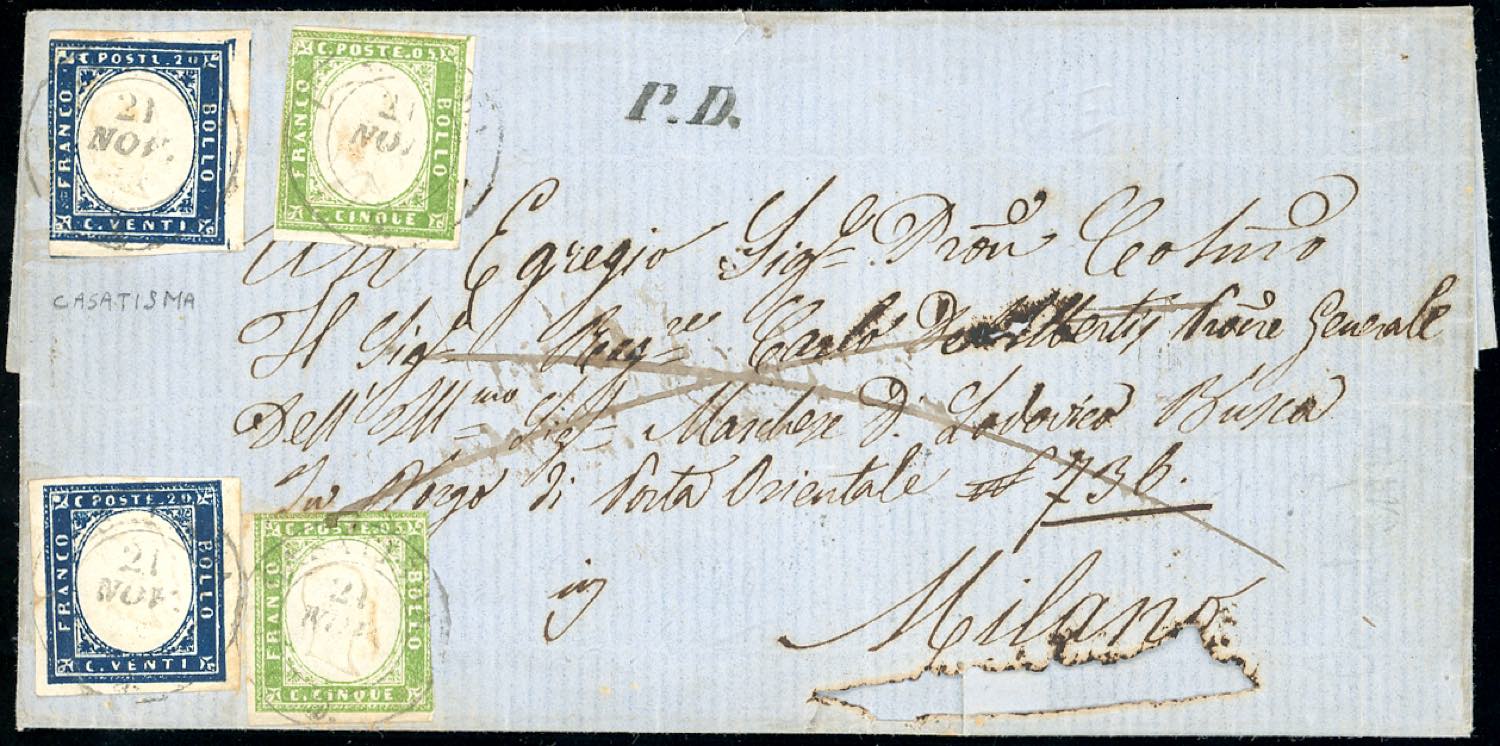 C. POSTE. 20
FRANCO
BOLLO
C. VENTI
21
NOV.
C. POSTE. 05
FRANCO
BOLLO
C. CINQUE
21
NOV
P.D.
CASATISMA
Egregio Sig.r Pron
Il Sig.r Rag.re Carlo De Albertis Generale
Dell' Ill.mo Sig.r Marchese D. Lodovico Busca
Borgo di Porta Orientale N 736.
in
Milano
C. POSTE. 20
FRANCO
BOLLO
C. VENTI
21
NOV.
C. POSTE. 05
FRANCO
BOLLO
C. CINQUE
21
NOV